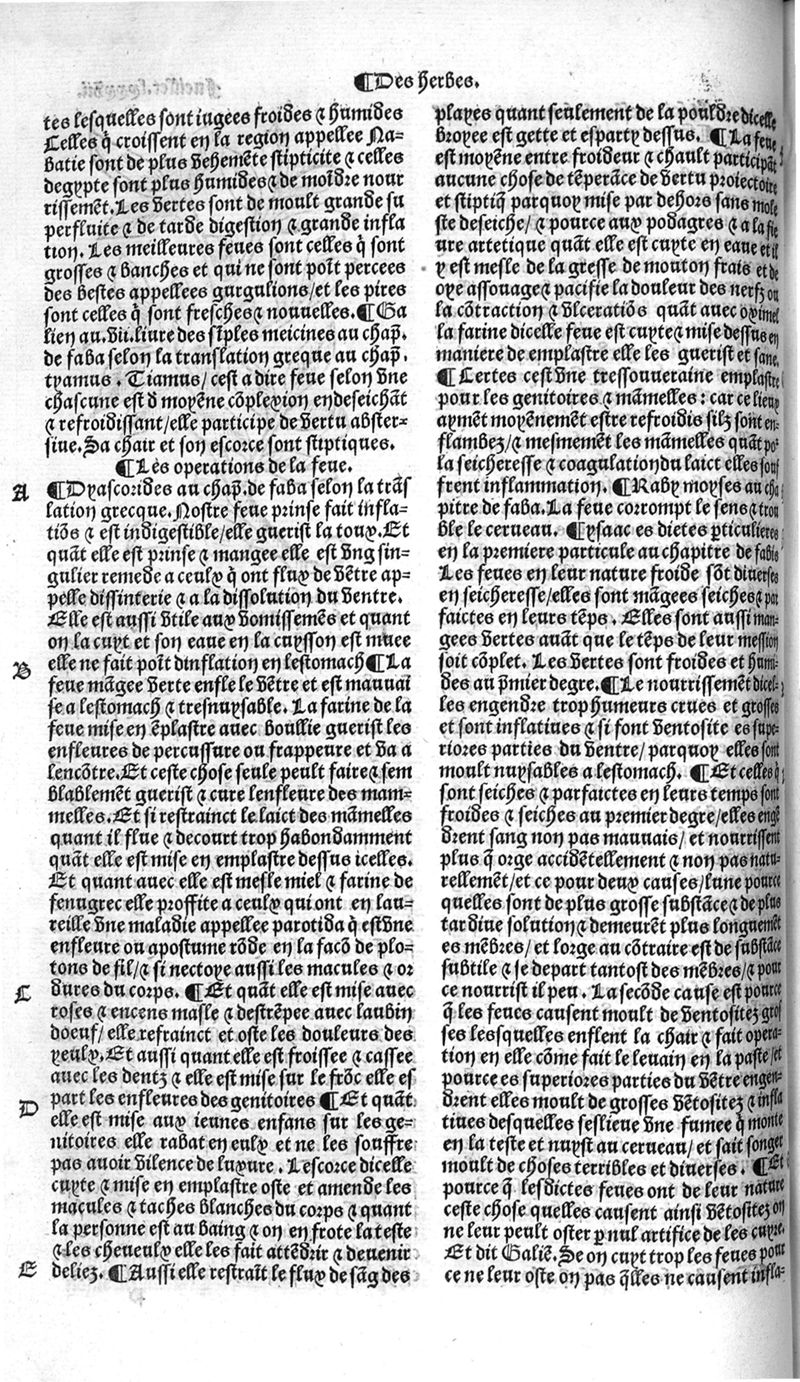 ¶Des herbes.
tes lesquelles sont iugees froides ⁊ humides
Celles q̃ croissent en la region appellee Na-
batie sont de plus vehemẽte stipticite ⁊ celles
degypte sont plus humides ⁊ de moĩdre nour
rissemẽt. Les vertes sont de moult grande su
perfluite ⁊ de tarde digestion ⁊ grande infla
tion. Les meilleures feues sont celles q̃ sont
grosses ⁊ banches et qui ne sont poĩt percees
des bestes appellees gurgulions/et les pires
sont celles q̃ sont fresches ⁊ nouuelles. ¶Ga
lien au.vii.liure des sĩples meicines au chap̃.
de faba selon la translation greque au chap̃.
tyamus. Tiamus/ cest a dire feue selon vne
chascune est d̃ moyẽne cõplexion endeseichãt
⁊ refroidissant/elle participe de vertu abster-
siue. Sa chair et son escorce sont stiptiques.
¶Les operations de la feue.
A ¶Dyascorides au chap̃.de faba selon la trãs
lation grecque. Nostre feue prinse fait infla-
tiõs ⁊ est indigestible/elle guerist la toux. Et
quãt elle est prinse ⁊ mangee elle est vng sin-
gulier remede a ceulx q̃ ont flux de vẽtre ap-
pelle dissinterie ⁊ a la dissolution du ventre.
Elle est aussi vtile aux vomissemẽs et quant
on la cuyt et son eaue en la cuysson est muee
B elle ne fait poĩt dinflation en lestomach ¶La
feue mãgee verte enfle le vẽtre et est mauuai
se a lestomach ⁊ tresnuysable. La farine de la
feue mise en ẽplastre auec boullie guerist les
enfleures de percussure ou frappeure et va a
lencõtre. Et ceste chose seule peult faire ⁊ sem
blablemẽt guerist ⁊ cure lenfleure des mam-
melles. Et si restrainct le laict des mãmelles
quant il flue ⁊ decourt trop habondamment
quãt elle est mise en emplastre dessus icelles.
Et quant auec elle est mesle miel ⁊ farine de
fenugrec elle proffite a ceulx qui ont en lau-
reille vne maladie appellee parotida q̃ est vne
enfleure ou apostume rõde en la facõ de plo-
tons de fil/⁊ si nectoye aussi les macules ⁊ or
C dures du corps. ¶Et quãt elle est mise auec
roses ⁊ encens masle ⁊ destrẽpee auec laubin
doeuf/ elle refrainct et oste les douleurs des
yeulx. Et aussi quant elle est froissee ⁊ cassee
auec les dentz ⁊ elle est mise sur le frõc elle es
D part les enfleures des genitoires ¶Et quãt
elle est mise aux ieunes enfans sur les ge-
nitoires elle rabat en eulx et ne les souffre
pas auoir vilence de luxure. Lescorce dicelle
cuyte ⁊ mise en emplastre oste et amende les
macules ⁊ taches blanches du corps ⁊ quant
la personne est au baing ⁊ on en frote la teste
⁊ les cheueulx elle les fait attẽdrir ⁊ deuenir
E deliez. ¶Aussi elle restraĩt le flux de sãg des
playes quant seulement de la pouldre dicelle
broyee est gette et esparty dessus. ¶La feue
est moyẽne entre froideur ⁊ chault participãt
aucune chose de tẽperãce de vertu proiectoire
et stiptiq̃ parquoy mise par dehors sans mole
ste deseiche/ ⁊ pource aux podagres ⁊ a la fie
ure artetique quãt elle est cuyte en eaue et il
y est mesle de la gresse de mouton frais et de
oye assouage ⁊ pacifie la douleur des nerfz ou
la cõtraction ⁊ vlceratiõs quãt auec oximel
la farine dicelle feue est cuyte ⁊ mise dessus en
maniere de emplastre elle les guerist et sane.
¶Certes cest vne tressouueraine emplastre
pour les genitoires ⁊ mãmelles: car ce lieux
aymẽt moyẽnemẽt estre refroidis silz sont en-
flambez/⁊ mesmemẽt les mãmelles quãt po-
la seicheresse ⁊ coagulation du laict elles souf
frent inflammation. ¶Raby moyses au cha
pitre de faba. La feue corrompt le sens ⁊ trou
ble le cerueau. ¶ysaac es dietes p̃ticulieres
en la premiere particule au chapitre de fabis
Les feues en leur nature froide sõt diuerses
en seicheresse/elles sont mãgees seiches ⁊ par
faictes en leurs tẽps. Elles sont aussi man-
gees vertes auãt que le tẽps de leur mession
soit cõplet. Les vertes sont froides et humi-
des au p̃mier degre. ¶Le nourrissemẽt dicel-
les engendre trop humeurs crues et grosses
et sont inflatiues ⁊ si font ventosite es supe-
riores parties du ventre/ parquoy elles sont
moult nuysables a lestomach. ¶Et celles q̃
sont seiches ⁊ parfaictes en leurs temps sont
froides ⁊ seiches au premier degre/elles engẽ
drent sang non pas mauuais/ et nourrissent
plus q̃ orge accidẽtellement ⁊ non pas natu-
rellemẽt/et ce pour deux causes/lune pource
quelles sont de plus grosse substãce ⁊ de plus
tardiue solution ⁊ demeurẽt plus longuemẽt
es mẽbres/ et lorge au cõtraire est de substãce
subtile ⁊ se depart tantost des mẽbres/ ⁊ pour
ce nourrist il peu. La secõde cause est pource
q̃ les feues causent moult de ventositez gros
ses lesquelles enflent la chair ⁊ fait opera-
tion en elle cõme fait le leuain en la paste/et
pource es superiores parties du vẽtre engen-
drent elles moult de grosses vẽtositez ⁊ infla
tiues desquelles seslieue vne fumee q̃ monte
en la teste et nuyst au cerueau/ et fait songer
moult de choses terribles et diuerses. ¶Et
pource q̃ lesdictes feues ont de leur nature
ceste chose quelles causent ainsi vẽtositez on
ne leur peult oster p̃ nul artifice de les cuyre.
Et dit Galiẽ. Se on cuyt trop les feues pour
ce ne leur oste on pas q̃lles ne causent infla-